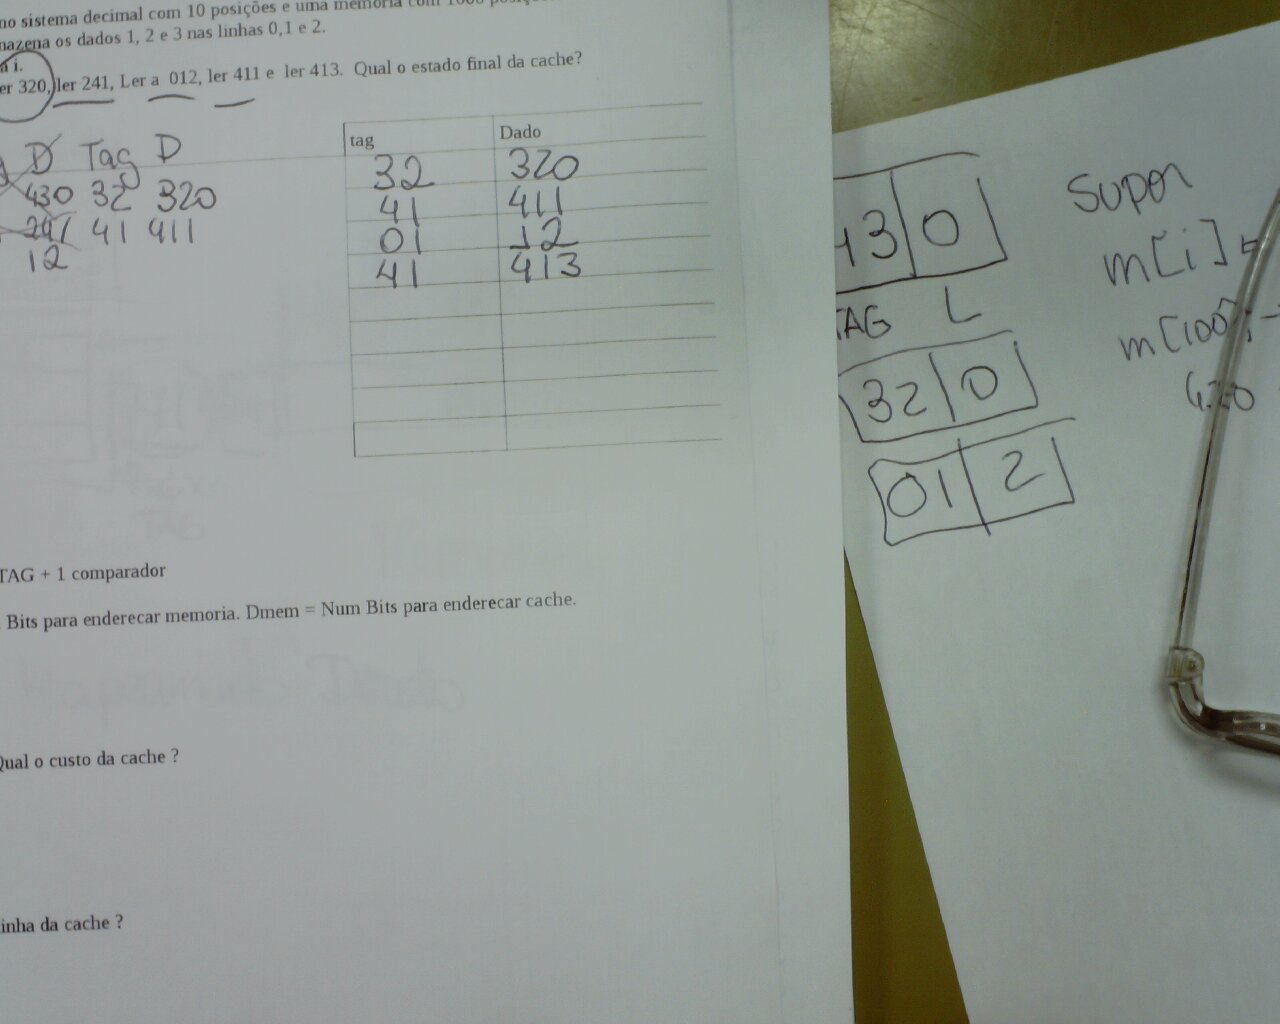 no sistema decimal com 10 posições e uma memória com 1000
mazena os dados 1, 2 e 3 nas linhas 0,1 e 2.
a i.
er 320, ler 241, Ler a 012, ler 411 e ler 413. Qual o estado final da cache?
D Tag D
430 32 320
241 41 411
12
tag Dado
32 320
41 411
01 12
41 413
TAG + 1 comparador
Bits para enderecar memoria. Dmem = Num Bits para enderecar cache.
Qual o custo da cache ?
inha da cache ?
43 0
TAG L
32 0
01 2
Supor
m[i] =
m[100]